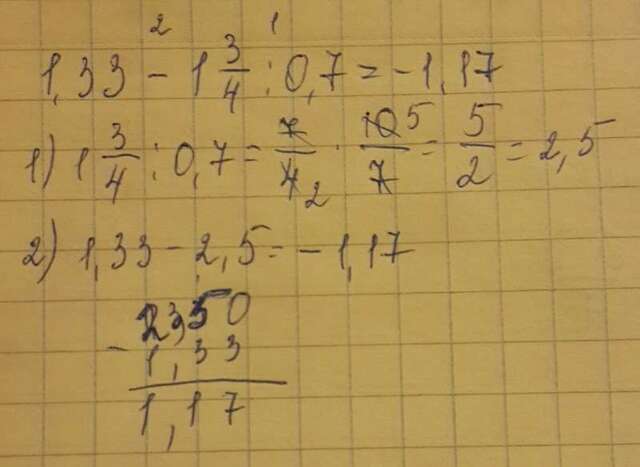 2 1
1,33 - 1 3/4 : 0,7 = -1,17
1) 1 3/4 : 0,7 = 7/4 2 · 10 5/7 = 5/2 = 2,5
2) 1,33 - 2,5 = -1,17
2,50
- 1,33
1,17